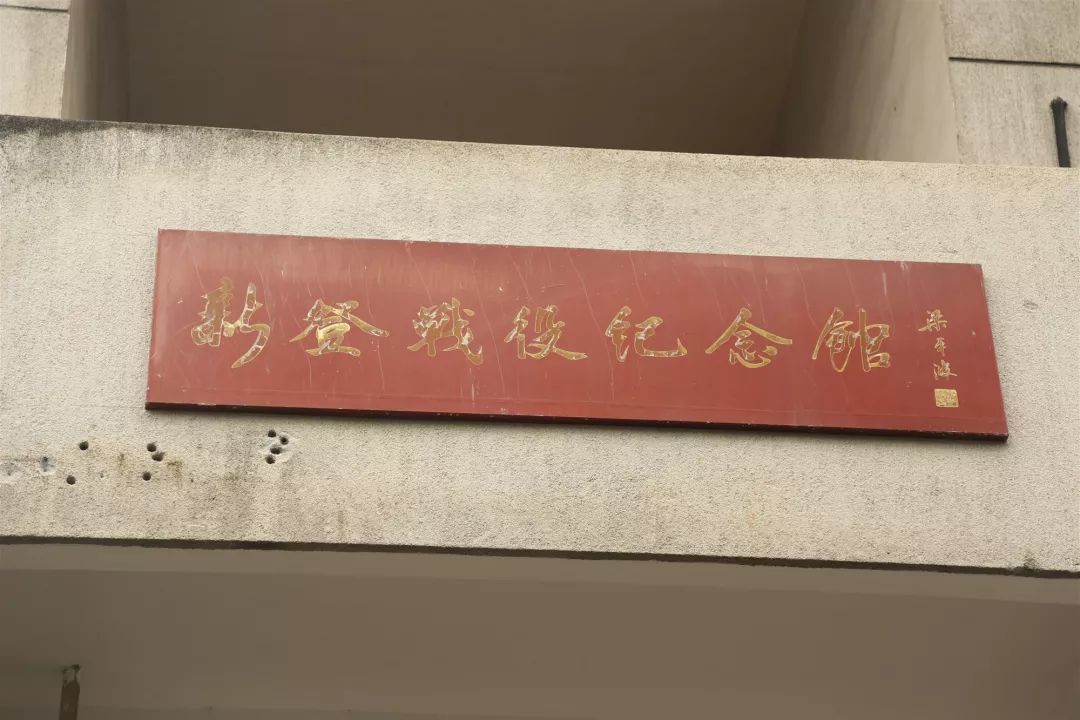 新登戰役纪念館
梁平波